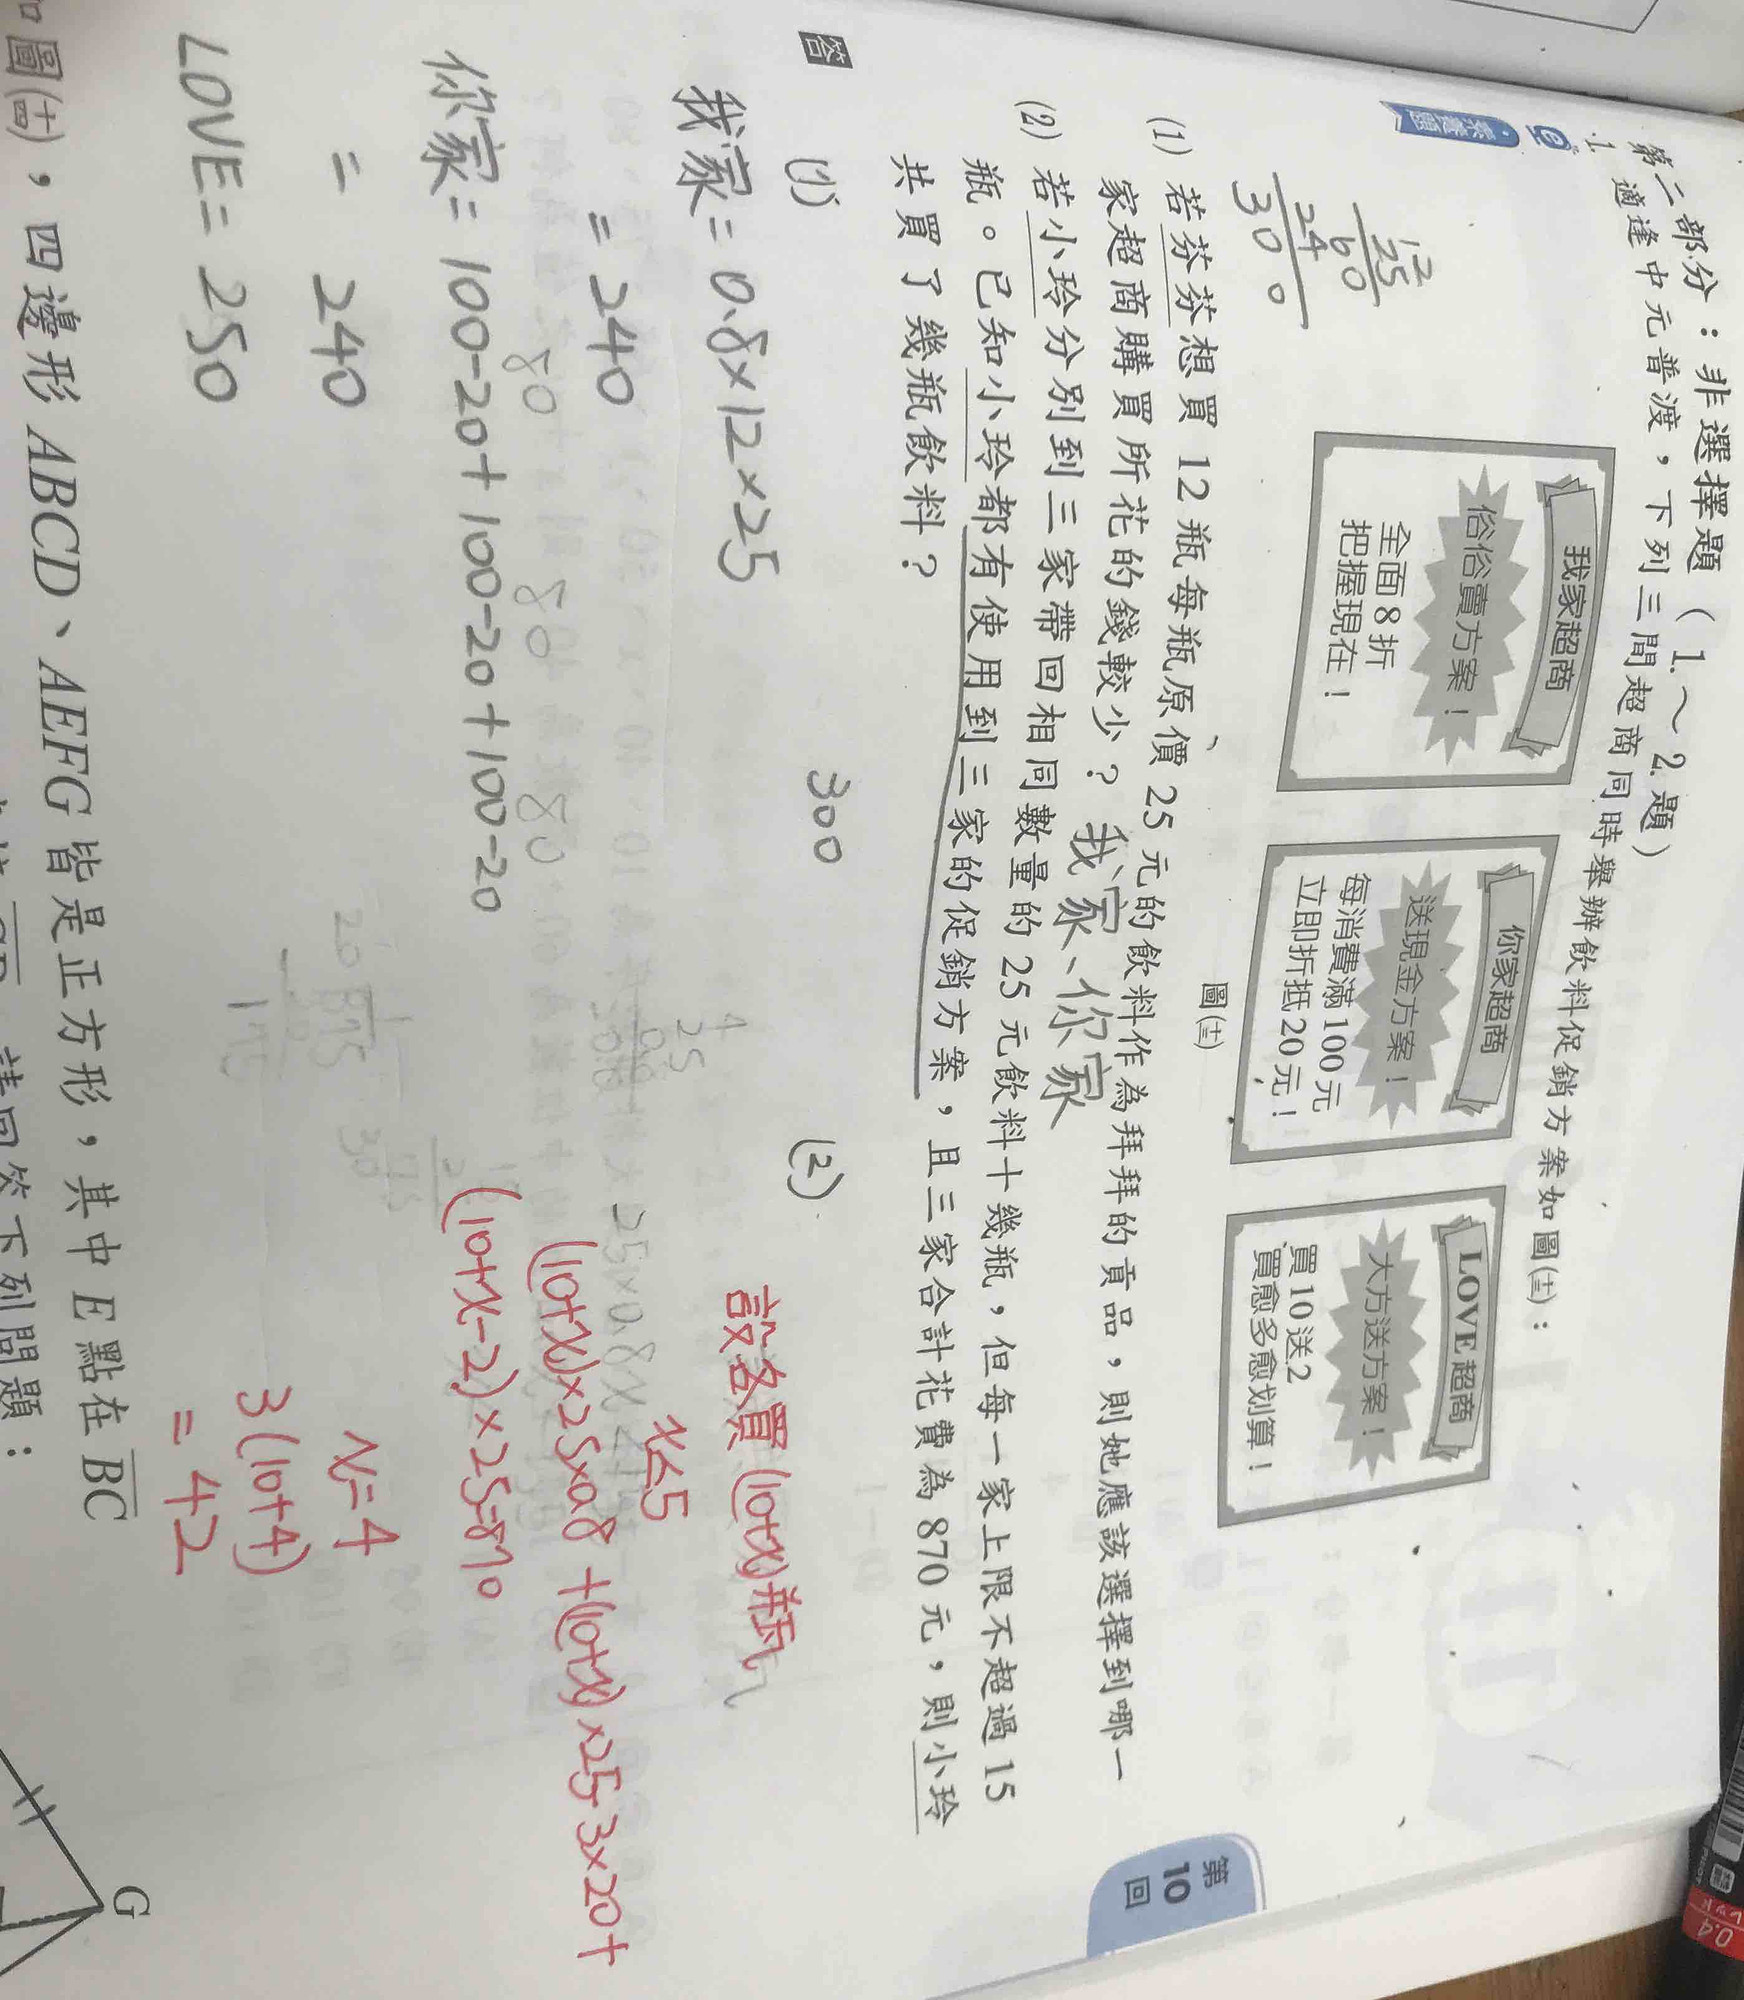 第二部分：非選擇題（1.～2.題）
1. 適逢中元普渡，下列三間超商同時舉辦飲料促銷方案如圖(十三)：
素養題
我家超商
俗俗賣方案！
全面8折
把握現在！
你家超商
送現金方案！
每消費滿100元
立即折抵20元！
LOVE超商
大方送方案！
買10送2
買愈多愈划算！
圖(十三)
12
25
60
24
300
(1) 若芬芬想買 12 瓶每瓶原價 25 元的飲料作為拜拜的貢品，則她應該選擇到哪一
家超商購買所花的錢較少？我家、你家
(2) 若小玲分別到三家帶回相同數量的 25 元飲料十幾瓶，但每一家上限不超過 15
瓶。已知小玲都有使用到三家的促銷方案，且三家合計花費為 870 元，則小玲
共買了幾瓶飲料？
第10回
答
(1)
300
我家=0.8×12×25
=240
80 80 80
你家=100-20+100-20+100-20
=240
LOVE=250
(2)
設各買(10+x)瓶
x≤5
(10+x)×25×0.8+(10+x)×25-3×20+
(10+x-2)×25=870
x=4
3(10+4)
=42
如圖(十四)，四邊形 ABCD、AEFG 皆是正方形，其中 E 點在 BC
請回答下列問題：
G
0.4